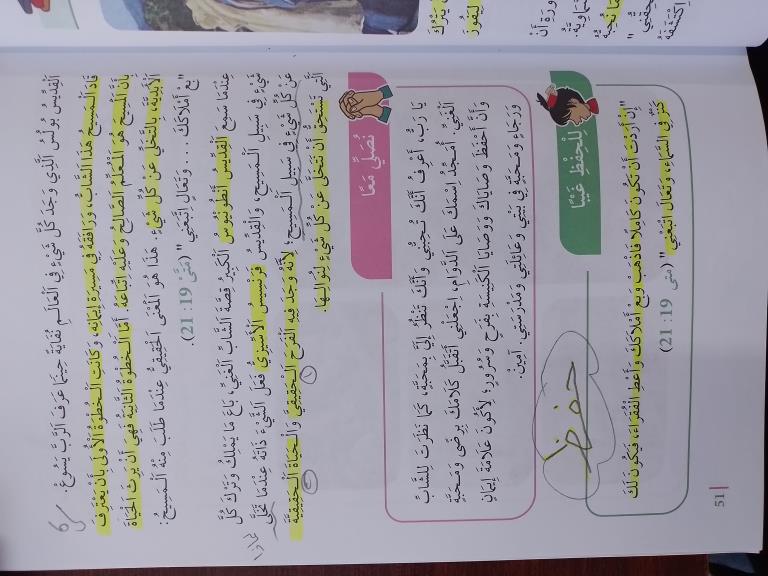 اَلْقِدِّيسُ بُولُسُ الَّذِي وَجَدَ كُلَّ شَيْءٍ فِي الْعَالَمِ نُفَايَةً حِينَمَا عَرَفَ الرَّبَّ يَسُوعَ.
قَادَ الْمَسِيحُ هٰذَا الشَّابَّ، وَرَافَقَهُ فِي مَسِيرَةِ إِيمَانِهِ، وَكَانَتِ الْخُطْوَةُ الْأُولَى أَنْ يَعْتَرِفَ
بِأَنَّ الْمَسِيحَ هُوَ الْمُعَلِّمُ الصَّالِحُ وَعَلَيْهِ اتِّبَاعُهُ. أَمَّا الْخُطْوَةُ الثَّانِيَةُ فَهِيَ أَنْ يَرِثَ الْحَيَاةَ
الْأَبَدِيَّةَ، بِالتَّخَلِّي عَنْ كُلِّ شَيْءٍ. هٰذَا هُوَ الْمَعْنَى الْحَقِيقِيُّ عِنْدَمَا طَلَبَ مِنْهُ الْمَسِيحُ:
"بِعْ أَمْلَاكَكَ ... وَتَعَالَ اتْبَعْنِي" (مَتَّى 19: 21).
عِنْدَمَا سَمِعَ الْقِدِّيسُ أَنْطُونْيُوسُ الْكَبِيرُ قِصَّةَ الشَّابِّ الْغَنِيِّ، بَاعَ مَا يَمْلِكُ وَتَرَكَ كُلَّ
شَيْءٍ فِي سَبِيلِ الْمَسِيحِ، وَالْقِدِّيسُ فَرَنْسِيسُ الْأَسِّيزِيُّ فَعَلَ الشَّيْءَ ذَاتَهُ عِنْدَمَا تَخَلَّى
عَنْ كُلِّ شَيْءٍ فِي سَبِيلِ الْمَسِيحِ؛ لِأَنَّهُ وَجَدَ فِيهِ الْفَرَحَ الْحَقِيقِيَّ وَالْحَيَاةَ الْحَقِيقِيَّةَ
الَّتِي تَسْتَحِقُّ أَنْ نَتَخَلَّى عَنْ كُلِّ شَيْءٍ لِنَوَالِهَا.
نُصَلِّي مَعًا
يَا رَبُّ، أَعْرِفُ أَنَّكَ تُحِبُّنِي وَأَنَّكَ تَنْظُرُ إِلَيَّ بِمَحَبَّةٍ، كَمَا نَظَرْتَ لِلشَّابِّ
الْغَنِيِّ. أُمَجِّدُ اسْمَكَ عَلَى الدَّوَامِ، اِجْعَلْنِي أَتَقَبَّلُ كَلَامَكَ بِرِضًى وَمَحَبَّةٍ
وَأَنْ أَحْفَظَ وَصَايَاكَ وَوَصَايَا الْكَنِيسَةِ بِفَرَحٍ وَسُرُورٍ؛ لِأَكُونَ عَلَامَةَ إِيمَانٍ
وَرَجَاءٍ وَمَحَبَّةٍ فِي بَيْتِي وَعَائِلَتِي وَمَدْرَسَتِي. آمِينْ.
لِلْحِفْظِ غَيْبًا
حفظ
"إِنْ أَرَدْتَ أَنْ تَكُونَ كَامِلًا فَاذْهَبْ وَبِعْ أَمْلَاكَكَ وَأَعْطِ الْفُقَرَاءَ، فَيَكُونَ لَكَ
كَنْزٌ فِي السَّمَاءِ، وَتَعَالَ اتْبَعْنِي" (متى 19: 21)
51